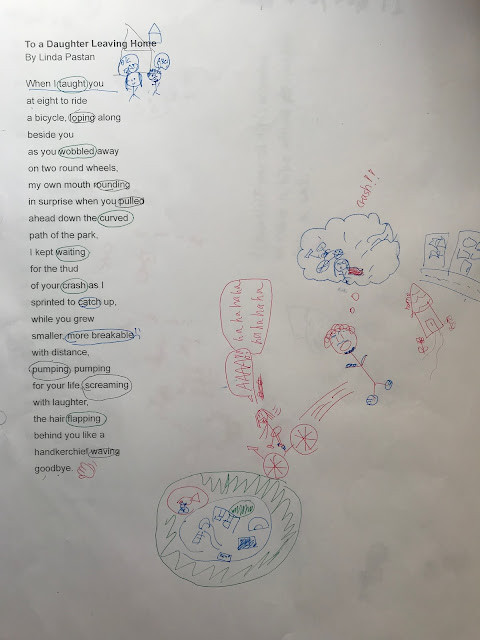 To a Daughter Leaving Home
By Linda Pastan
When I taught you
at eight to ride
a bicycle, loping along
beside you
as you wobbled away
on two round wheels,
my own mouth rounding
in surprise when you pulled
ahead down the curved
path of the park,
I kept waiting
for the thud
of your crash as I
sprinted to catch up,
while you grew
smaller, more breakable
with distance,
pumping, pumping
for your life, screaming
with laughter,
the hair flapping
behind you like a
handkerchief waving
goodbye.
crash!!
hahahaha
hahahaha
AAAAA
home